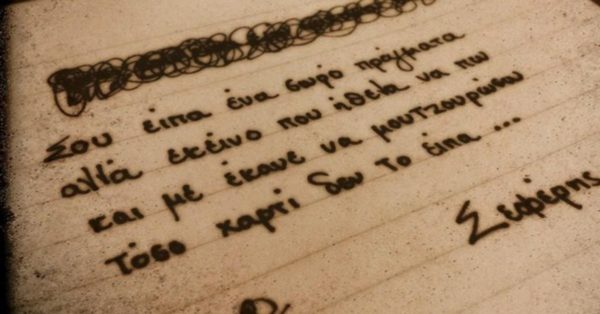 Σου είπα ένα σωρό πράγματα
αλλά εκείνο που ήθελα να πω
και με έκανε να μουτζουρώσω
τόσο χαρτί δεν το είπα ...
Σεφέρης